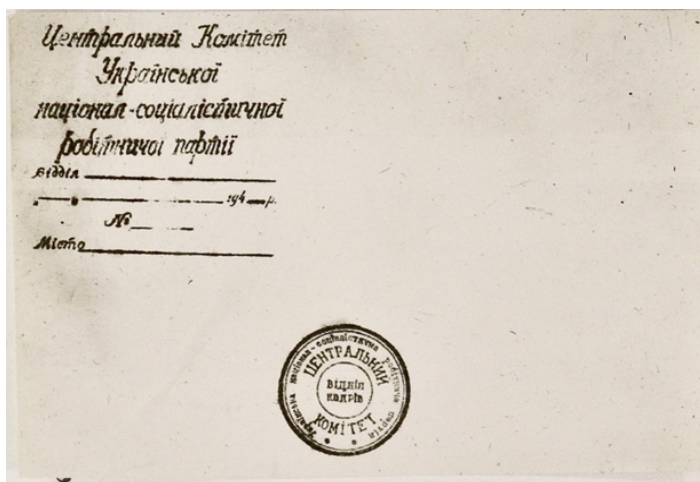 Центральний Комітет
Української
націонал-соціалістичної
робітничої партії
Відділ
194 р.
№
Місто
Українська націонал-соціалістична робітнича партія
ЦЕНТРАЛЬНИЙ
Відділ
кадрів
КОМІТЕТ